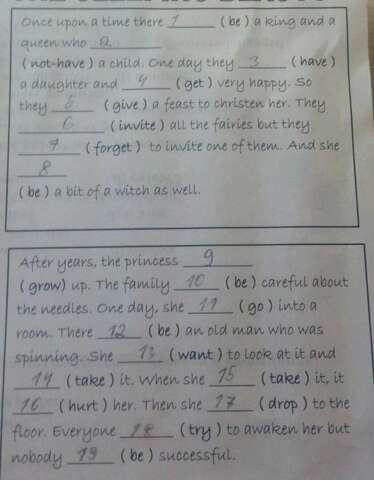 THE SLEEPING BEAUTY
Once upon a time there 1 ( be ) a king and a
queen who 2
( not-have ) a child. One day they 3 ( have )
a daughter and 4 ( get ) very happy. So
they 5 ( give ) a feast to christen her. They
6 ( invite ) all the fairies but they
7 ( forget ) to invite one of them. And she
8
( be ) a bit of a witch as well.
After years, the princess 9
( grow) up. The family 10 ( be ) careful about
the needles. One day, she 11 ( go ) into a
room. There 12 ( be ) an old man who was
spinning. She 13 ( want ) to look at it and
14 ( take ) it. When she 15 ( take ) it, it
16 ( hurt ) her. Then she 17 ( drop ) to the
floor. Everyone 18 ( try ) to awaken her but
nobody 19 ( be ) successful.